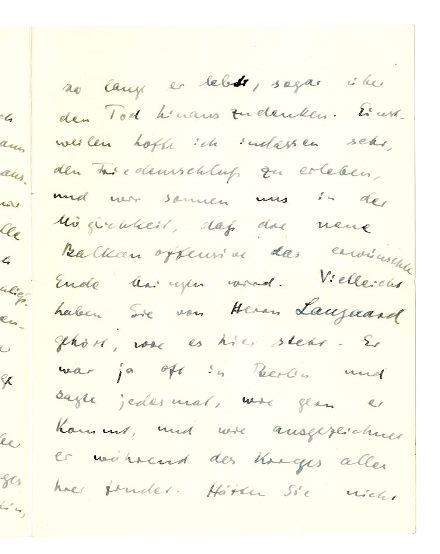 so lange er lebte, sogar über
den Tod hinaus zu denken. Einst-
weilen hoffe ich indessen sehr,
den Friedensschluß zu erleben,
und wir sonnen uns in der
Möglichkeit, daß die neue
Balkanoffensive das erwünschte
Ende bringen wird. Vielleicht
haben Sie von Herrn Langaard
gehört, wie es hier steht. Er
war ja oft in Berlin und
sagte jedesmal, wie gern er
kommt, und wie ausgezeichnet
er während des Krieges alles
hier findet. Hätten Sie nicht